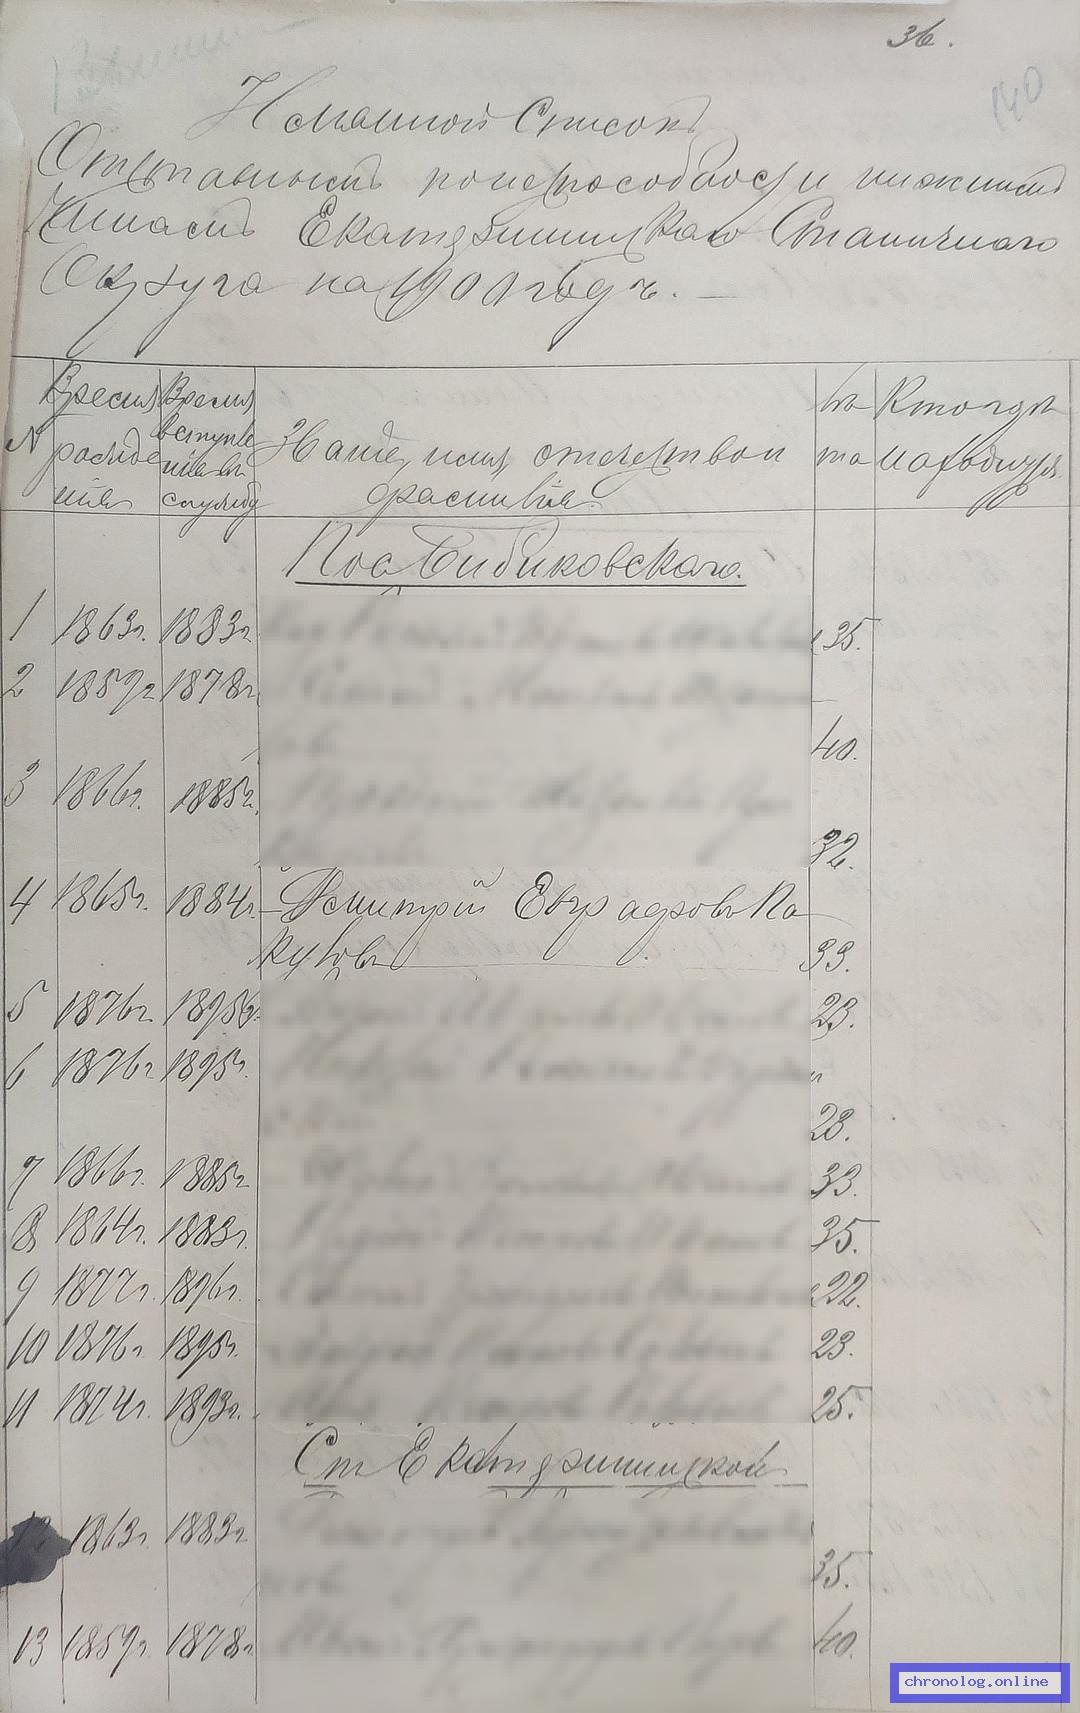 36.
140
Имянной Списокъ
Отставнымъ по неспособности нижнимъ
Чинамъ Екатерининскаго Станичнаго
Округа на 1901 годъ. —
№ Время рожденія Время вступленія въ службу Чинъ, имя, отечество и фамилія Лѣта Кто гдѣ находится
Пос Бибиковскаго.
1 1863г. 1883г 35.
2 1859г 1878г. 40.
3 1866г. 1885г. 32.
4 1865г. 1884г. Дмитрій Евграфовъ Ка
куовъ 33.
5 1876г. 1895г. 23.
6 1876г 1895г. 23.
7 1866г. 1885г 33.
8 1864г. 1883г. 35.
9 1877г. 1896г. 22.
10 1876г. 1895г. 23.
11 1874г. 1893г. 25.
Ст Екатерининской
12 1863г. 1883г 35.
13 1859г. 1878г. 40.
chronolog.online